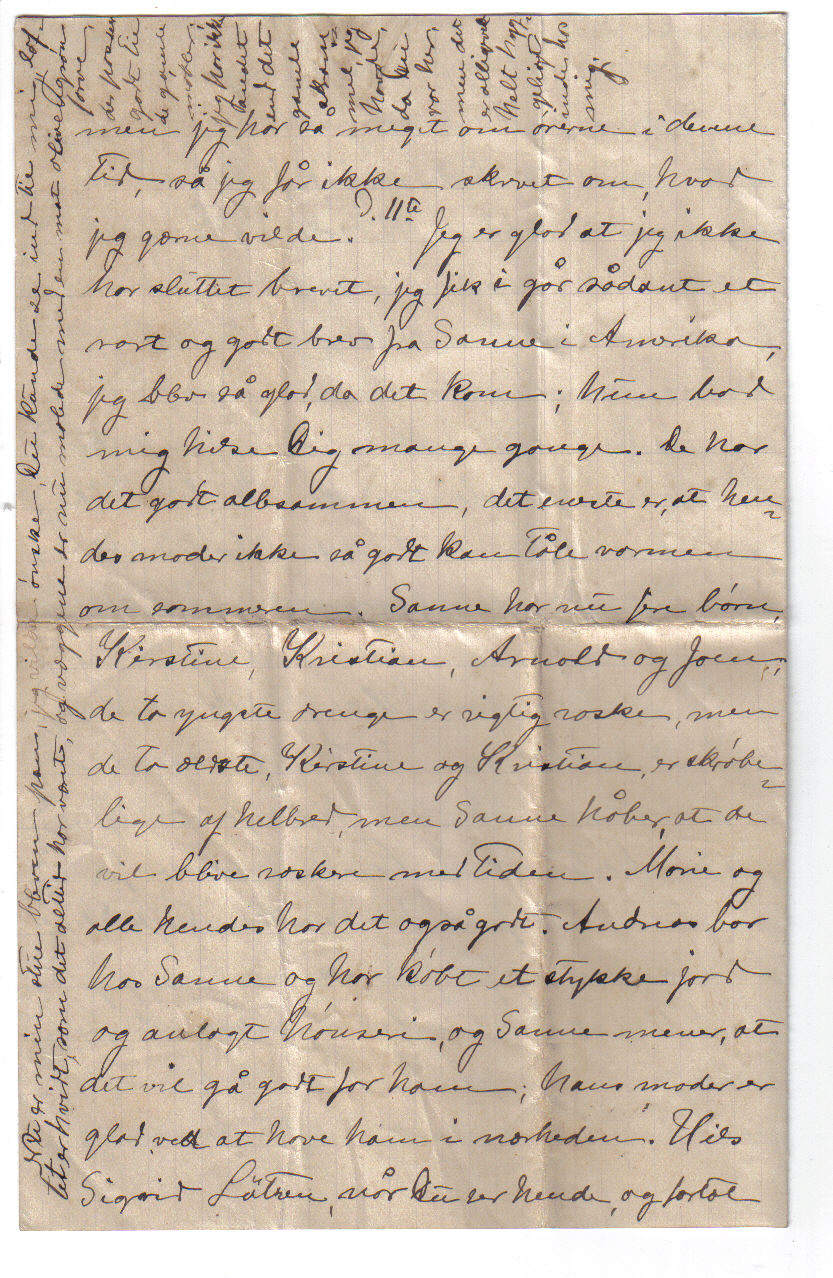 men jeg har så meget om ørerne i denne
Tid, så jeg får ikke skrevet om, hvad
jeg gærne vilde. D. 11te Jeg er glad at jeg ikke
har sluttet brevet, jeg fik i går sådant et
rart og godt brev fra Sanne i Amerika,
jeg blev så glad, da det kom; hun bad
mig hilse Dig mange gange. De har
det godt allesammen, det eneste er, at hen-
des moder ikke så godt kan tåle varmen
om sommeren. Sanne har nu fire børn,
Kirstine, Kristian, Arnold og Joen,
de to yngste drenge er rigtig raske, men
de to ældste, Kirstine og Kristian, er skrøbe-
lige af helbred, men Sanne håber, at de
vil blive raskere med Tiden. Marie og
alle hendes har det også godt. Andreas bor
hos Sanne og har købt et stykke jord
og anlagt hønseri, og Sanne mener, at
det vil gå godt for ham; hans moder er
glad ved at have ham i nærheden. Hils
Sigrid Lützen, når Du ser hende, og fortæl
Nu er min stue bleven pæn, jeg vilde ønske Du kunde se ind til mig, lof-
tet er hvidt, som det altid har været, og væggene er nu malede med en mat olivengrøn
farve,
der passer
godt til
de gamle
møbler;
jeg har ikke
andet
end det
gamle
skram-
mel, jeg
havde,
da Du
var her,
men det
er alligevel
helt hyg-
geligt
inde hos
mig.